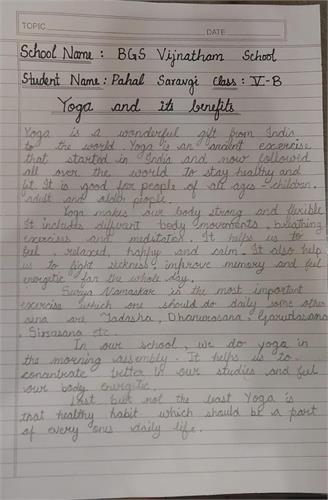 TOPIC
DATE
School Name : BGS Vijnatham School
Student Name : Pahal Saravgi Class : V-B
Yoga and its benefits
Yoga is a wonderful gift from India
to the world Yoga is an ancient excercise
that started in India and now followed
all over the world to stay healthy and
fit. It is good for people of all ages - children,
adult and older people.
Yoga makes our body strong and flexible
It includes different body movements, breathing
exercises and meditation. It helps us to
feel relaxed, happy and calm. It also help
us to fight sickness, improve memory and feel
energetic for the whole day.
Surya Namaskar is the most important
exercise which one should do daily some other
asna are Tadasha, Dhanurasana, Garudasana
, Sirsasana etc.
In our school, we do yoga in
the morning assembly. It helps us to
concentrate better in our studies and feel
our body energetic.
Last but not the least Yoga is
that healthy habit which should be a part
of every ones daily life.